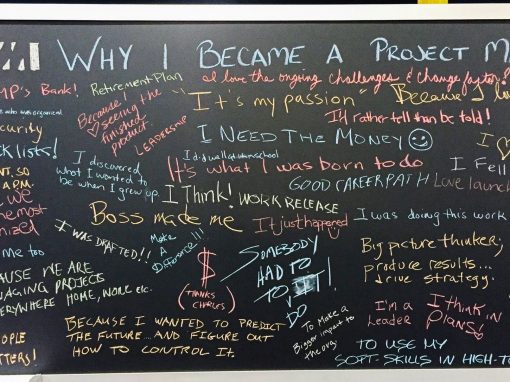 WHY I BECAME A PROJECT M
MP's Bank!
Retirement Plan
I love the ongoing challenges & change factor!
Because
seeing the
finished
product
LEADERSHIP
It's my passion"
Because I
I'd rather tell than be told!
curity
ck lists!
I NEED THE MONEY
I
I discovered
what I wanted to
be when I grew up.
It's what I was born to do
I Fell
GOOD CAREER PATH
Love launch
I Think!
WORK RELEASE
Boss made me
It just happened
I was doing this work
I WAS DRAFTED!!
Make
A
Difference!!!
me too
$
(THANKS
CHARLES)
SOMEBODY
HAD TO
DO
Big picture thinker;
produce results...
drive strategy.
AUSE WE ARE
NAGING PROJECTS
ERYWHERE HOME, WORK etc.
I'm a
Leader
I think in
PLANS!
BECAUSE I WANTED TO PREDICT
THE FUTURE... AND FIGURE OUT
HOW TO CONTROL IT.
To Make a
Bigger impact to
the org
TO USE MY
SOFT-SKILLS IN HIGH-T
EOPLE
TTERS!